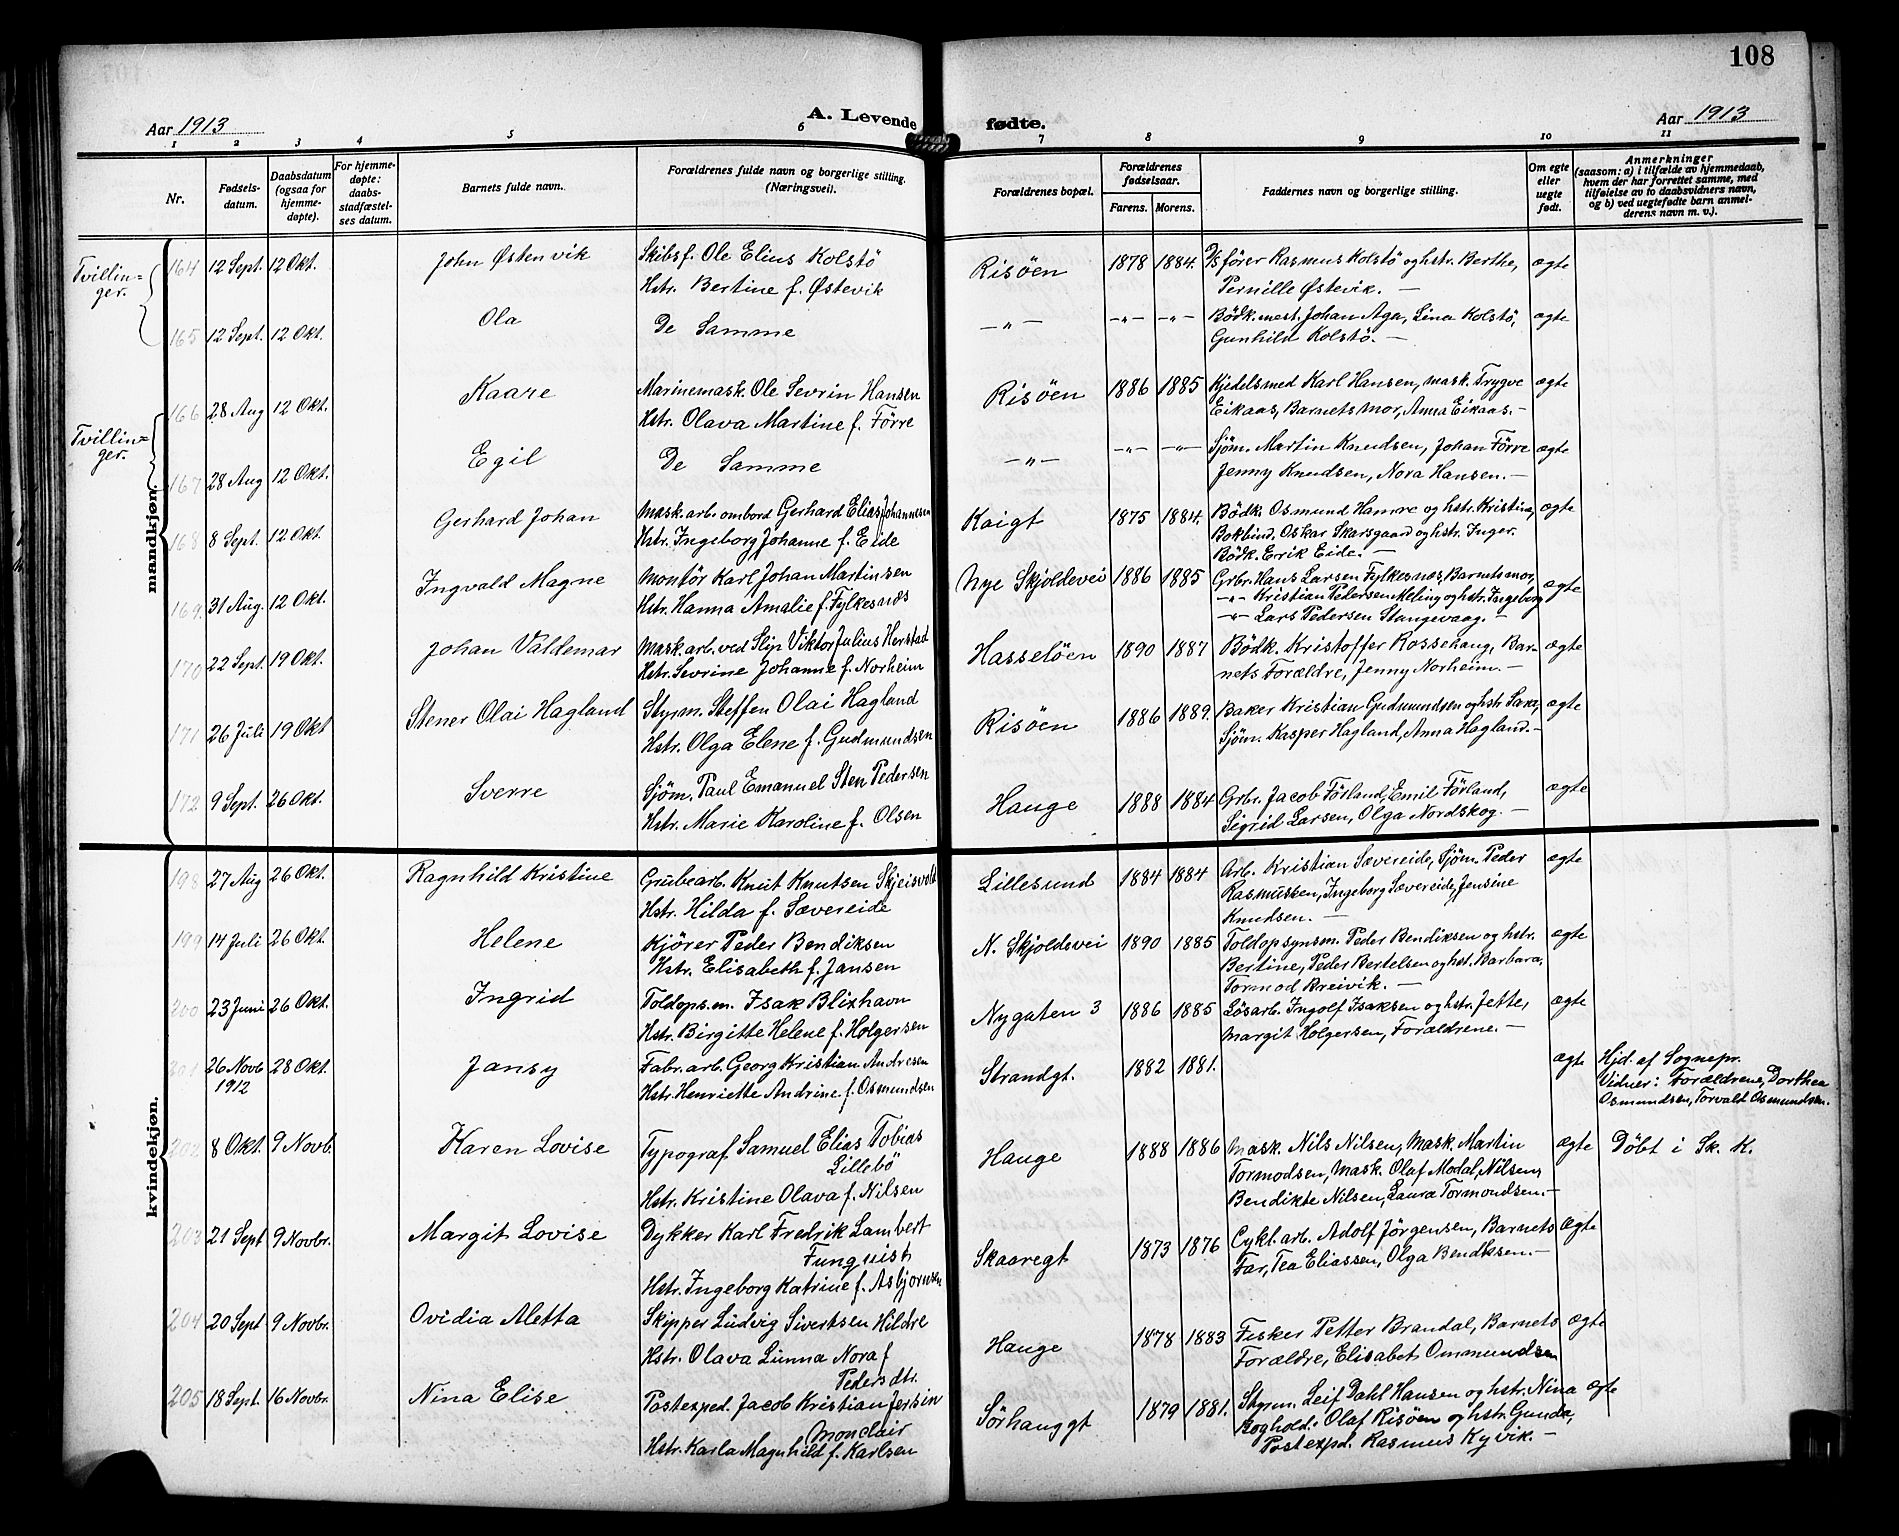 108
Aar 1913
A. Levende fødte.
Aar 1913
1 2 3 4 5 6 7 8 9 10 11
Nr.
Fødsels-
datum.
Daabsdatum
(ogsaa for
hjemme-
døpte).
For hjemme-
døpte:
daabs-
stadfæstel-
ses datum.
Barnets fulde navn.
Forældrenes fulde navn og borgerlige stilling.
(Næringsvei).
Forældrenes bopæl.
Forældrenes
fødselsaar.
Farens. Morens.
Faddernes navn og borgerlige stilling.
Om egte
eller
uegte
født.
Anmerkninger
(saasom: a) i tilfælde av hjemmedaab,
hvem der har forrettet samme, med
tilføielse av to daabsvidners navn,
og b) ved uegtefødte barn anmel-
derens navn m. v.).
Tvillin-
ger.
mandkjøn.
164 12 Sept. 12 Okt. John Østenvik Skibsf. Ole Elius Kolstö Risöen 1878 1884. D/s förer Rasmus Kolstö og hstr. Berthe, ægte
Hstr. Bertine f. Østevik Pernille Østevik. —
165 12 Sept. 12 Okt. Ola De Samme —"— —"— —"— Bödk. mest. Johan Aga, Lina Kolstö, ægte
Gunhild Kolstö. —
Tvillin=
ger.
166 28 Aug 12 Okt. Kaare Marinemask. Ole Sevrin Hansen Risöen 1886 1885 Kjedelsmed Karl Hansen, mask. Trygve ægte
Hstr. Olava Martine f. Förre Eikaas, Barnets mor, Anna Eikaas. —
167 28 Aug 12 Okt. Egil De Samme —"— —"— —"— Sjöm. Martin Knudsen, Johan Förre ægte
Jenny Knudsen, Nora Hansen. —
168 8 Sept. 12 Okt. Gerhard Johan Mask. arb. ombord Gerhard Elias Johannesen Kaigt 1875 1884. Bödk. Osmund Hamre og hstr. Kristina, ægte
Hstr. Ingeborg Johanne f. Eide Bokbind. Oskar Skarsgaard og hstr. Inger.
Bödk. Erik Eide. —
169. 31 Aug. 12 Okt. Ingvald Magne Montör Karl Johan Martinsen Nye Skjoldevei 1886 1885 Grbr. Hans Larsen Fylkesnes, Barnets mor, ægte
Hstr. Hanna Amalie f. Fylkesnæs —"— Kristian Pedersen Aleling og hstr. Ingeborg
—"— Lars Pedersen Stangevaag. —
170 22 Sept. 19 Okt. Johan Valdemar Mask. arb. ved Slip Viktor Julius Herstad Hasselöen 1890 1887 Bödk. Kristoffer Rossehaug, Bar- ægte
Hstr. Sevrine Johanne f. Norheim nets Forældre, Jenny Norheim. —
171 26 Juli 19 Okt Stener Olai Hagland Styrm. Steffen Olai Hagland Risöen 1886 1889. Baker Kristian Gudmundsen og hstr. Sara, ægte
Hstr. Olga Elene f. Gudmundsen Sjöm. Kasper Hagland, Anna Hagland. —
172 9 Sept. 26 Okt. Sverre Sjöm. Paul Emanuel Sten Pedersen Hauge 1888 1884 Grbr. Jacob Förland, Emil Förland, ægte
Hstr. Marie Karoline f. Olsen Sigrid Larsen, Olga Nordskog. —
kvindekjøn.
198 27 Aug 26 Okt. Ragnhild Kristine Grubearb. Knut Knutsen Skjeisvold Lillesund 1884 1884 Arb. Kristian Sævereide, Sjöm. Peder ægte
Hstr. Hilda f. Sævereide Rasmussen, Ingeborg Sævereide, Jensine
Knudsen. —
199 14 Juli 26 Okt. Helene Kjörer Peder Bendiksen N. Skjoldsvei 1890 1885 Toldopsynsm. Peder Bendiksen og hstr. ægte
Hstr. Elisabeth f. Jansen Bertine, Peder Bertelsen og hst. Barbara,
Tormod Breivik. —
200 23 Juni 26 Okt. Ingrid Toldops.m. Isak Blixhavn Nygaten 3 1886 1885 Lösarb. Ingolf Isaksen og hstr. Jette, ægte
Hstr. Birgitte Helene f. Holgersen Margit Holgersen, Forældrene. —
201 26 Novb 28 Okt. Jansy Fabr. arb. Georg Kristian Andresen Strandgt. 1882 1881. ægte Hjd. af Sognepr.
1912 Hstr. Henriette Andrine f. Osmundsen Vidner: Forældrene, Dorthea
Osmundsen, Torvald Osmundsen.
202 8 Okt. 9 Novb. Karen Lovise Typograf Samuel Elias Tobias Hauge 1888 1886 Mask. Nils Nilsen, Mask. Martin ægte Döbt i Sk. K.
Lillebö Tormodsen, Mask. Olaf Modal, Nilsen,
Hstr. Kristine Olava f. Nilsen Bendikte Nilsen, Laura Tormondsen. —
203 21 Sept 9 Novbr. Margit Lovise Dykker Karl Fredrik Lambert Skaaregt 1873 1876 Cykl. arb. Adolf Jörgensen, Barnets Ægte
Funquist Far, Tea Eliassen, Olga Bendiksen. —
Hstr. Ingeborg Katrine f. Asbjornsen
204 20 Sept 9 Novbr. Ovidia Aletta Skipper Ludvig Sivertsen Hildre Hauge 1878 1883 Fisker Petter Brandal, Barnets Ægte
Hstr. Olava Lunna Nora f Forældre, Elisabet Ommundsen
Pedersdtr.
205 18 Sept. 16 Novbr. Nina Elise Postexped. Jacob Kristian Jersin Sörhauggt 1879 1881. Styrm. Leif Dahl Hansen og hstr. Nina ægte
Monclair Boghold. Olaf Risöen og hstr. Gunda,
Hstr. Karla Magnhild f. Karlsen Postexpd. Rasmus Kyvik. —